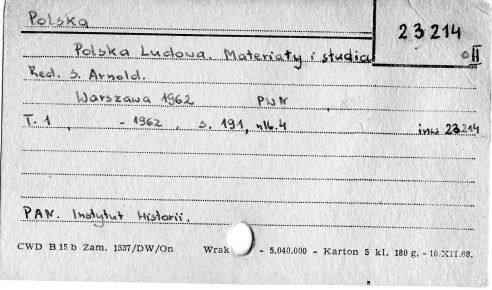 Polska
23214
II
Polska Ludowa. Materiały i studia
Red. S. Arnold.
Warszawa 1962 PWN
T. 1, - 1962, s. 191, nlb. 4 inw 23214
PAN. Instytut Historii.
CWD B 15 b Zam. 1537/DW/On Wrak - 5.040.000 - Karton 5 kl. 180 g. - 10.XII.68.